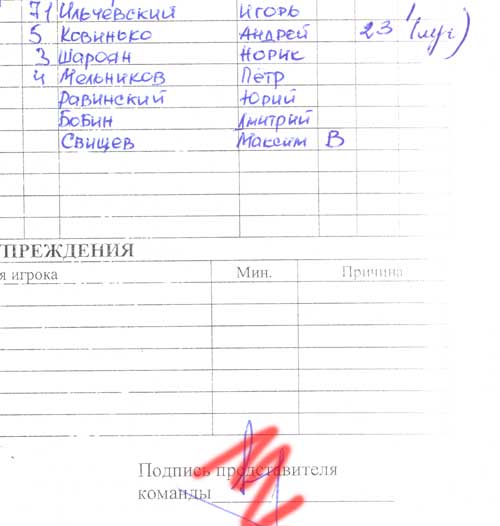 71 Ильчевский Игорь
5 Ковинько Андрей 23
3 Шароян Норик
4 Мельников Петр
Равинский Юрий
Бобин Дмитрий
Свищев Максим В
УПРЕЖДЕНИЯ
я игрока Мин. Причина
Подпись представителя
команды